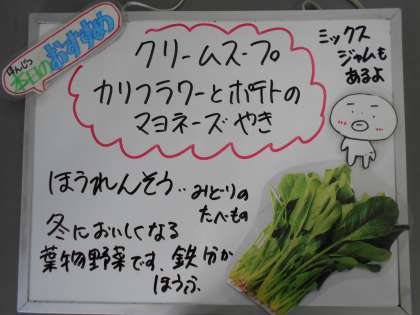 ほんじつ
本日のおすすめ
クリームスープ
カリフラワーとポテトの
マヨネーズやき
ミックス
ジャムも
あるよ
ほうれんそう‥みどりの
たべもの
冬においしくなる
葉物野菜です、鉄分が
ほうふ